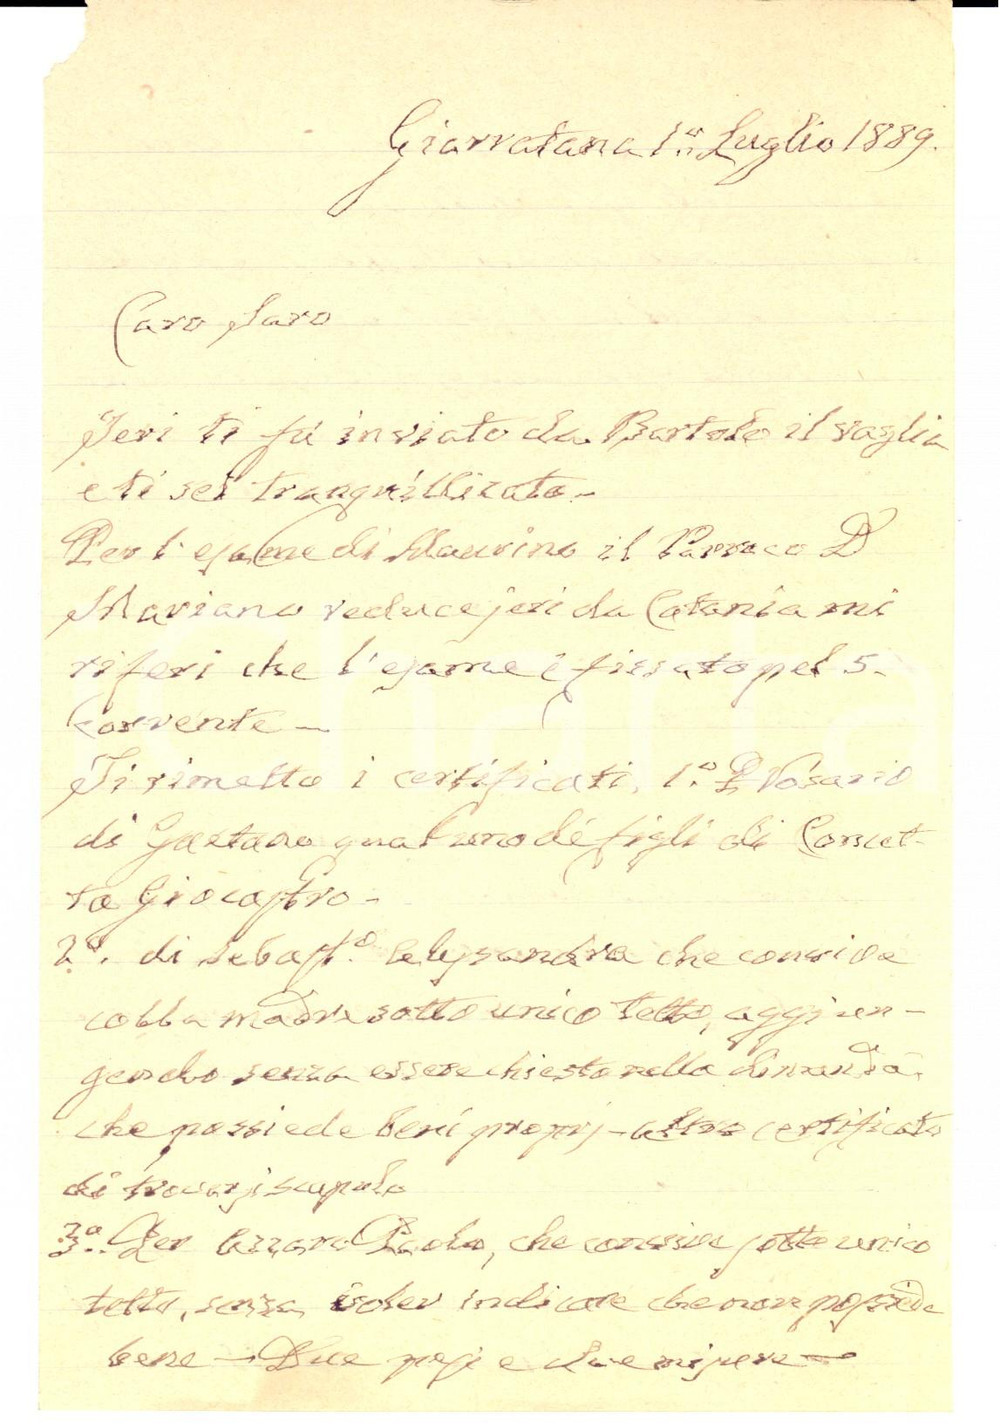 Giarratana 1.° Luglio 1889.
Caro Saro
Jeri ti fu inviato da Bartolo il vaglia
e ti sei tranquillizato -
Per l'esame di Maurino il Parroco D
Mariano reduce jeri da Catania mi
riferì che l'esame è fissato pel 5.
Corrente -
Ti rimetto i certificati, 1.° P Rosario
di Gaetano qual uno dé figli di Concet-
ta Giocastro -
2°. di Sebast.° che convive
colla madre sotto unico tetto, aggiun-
gendo senza essere chiesto nella dimanda,
che possiede beni proprj - altro certificato
di trovarsi scapolo
3°. Per Azzaro Paolo, che convive sotto unico
tetto, senza voler indicare che non possiede
bene - Due pesi e due misure -